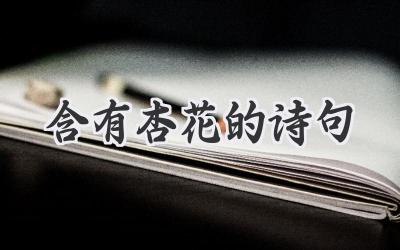 含有杏花的诗句